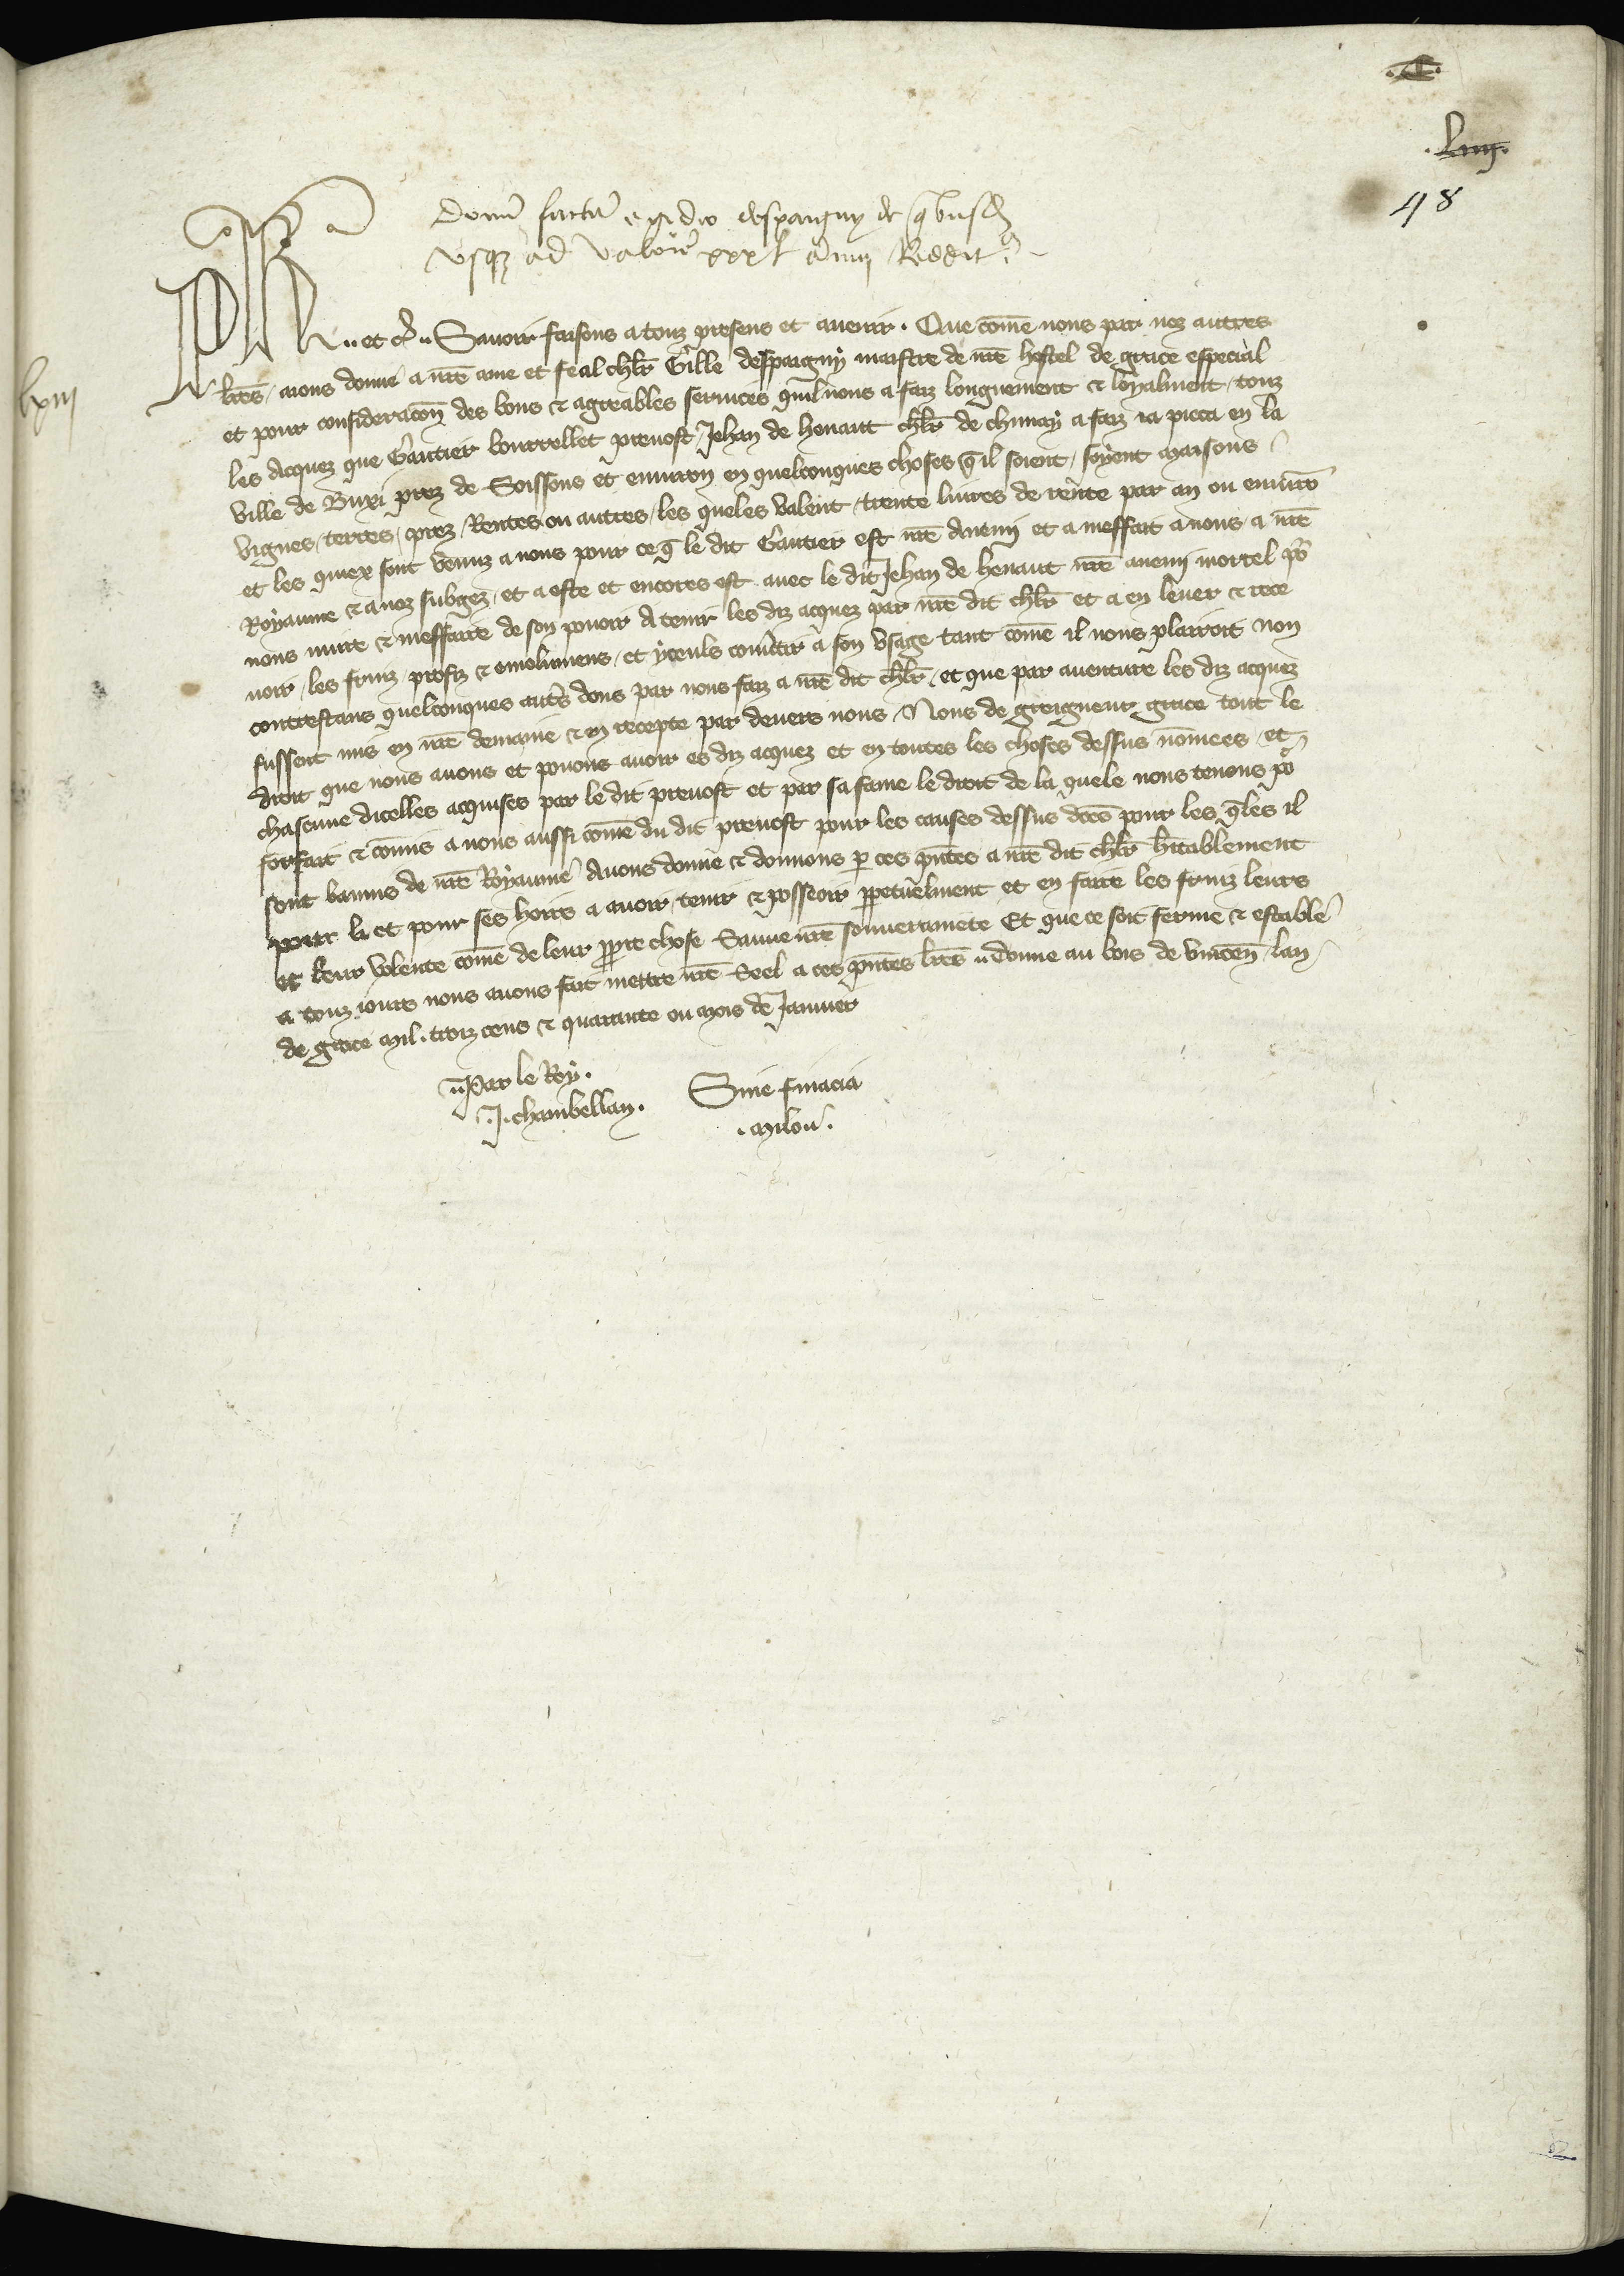 .liiij.
48
lxiij
Donũ factũ egidio despaigny de qͥbusdã
usqꝫ ad valorẽ xxx l ãnui Reddit᷒
Ph .. et cͣ .. Savoir faisons a touz presens et avenir. Que cõme nous par noz autres
lr̃es, avons donne a nr̃e ame et feal chlr̃ Gille despaigny maistre de nr̃e hostel de grace especial
et pour consideracõn des bons & agreables services quil nous a faiz longuement & loyalment, touz
les Acquez que Gautier bourrellet prevost Jehan de henaut chlr̃ de chimay a faiz ia pieca en la
ville de Buxi prez de Soissons et environ en quelconques choses qͥl soient, soyent maisons
vignes, terres, prez, Rentes ou autres, les queles valent, trente livres de rente par an ou envirõ
et les quiex sont venuz a nous pour ce q̃ le dit Gautier est nr̃e Anemi et a meffait a nous, a nr̃e
Royaume & a noz subgez, et a este et encores est avec le dit Jehan de henaut nr̃e anemi mortel pͦʳ
nous nuire & meffaire de son povoir A tenir les diz acquez par nr̃e dit chlr̃ et a en lever & rece
voir, les fruiz, profiz & emolumens, et yceuls cõvertir a son usage tant cõme il nous plairoit non
contrestans quelconques aut͛s dons par nous faiz a nr̃e dit chlr̃, et que par aventure les diz acquez
fussent mis en nr̃e demaine & en recepte par devers nous Nous de greigneur grace tout le
droit que nous avons et povons avoir es diz acquez et en toutes les choses dessus nõmees, et
chascune dicelles acquises par le dit prevost et par sa fame le droit de la quele nous tenons pͦʳ
forfait & cõmis a nous aussi cõme du dit prevost pour les causes dessus dc̃es pour les q̃les il
sont bannis de nr̃e Royaume Avons donne & donnons ꝑ ces pñtes a nr̃e dit chlr̃ h̃itablement
pour li et pour ses hoirs a avoir, tenir & posseoir ꝑpetuelment et en faire les fruiz leurs
et leur volente cõme de leur ꝓpre chose Sauve nr̃e souverainete Et que ce soit ferme & estable
a touz iours nous avons fait mettre nr̃e Seel a ces pñtes lr̃es .. donne au bois de vincen̄ lan
de grace Mil. troiz cens & quarante ou mois de Janvier
.. Par le Roy.
.J. chambellan.
Sine financia
. Milon̄.